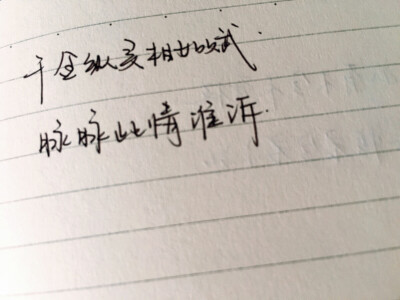 千金纵买相如赋.
脉脉此情谁诉.